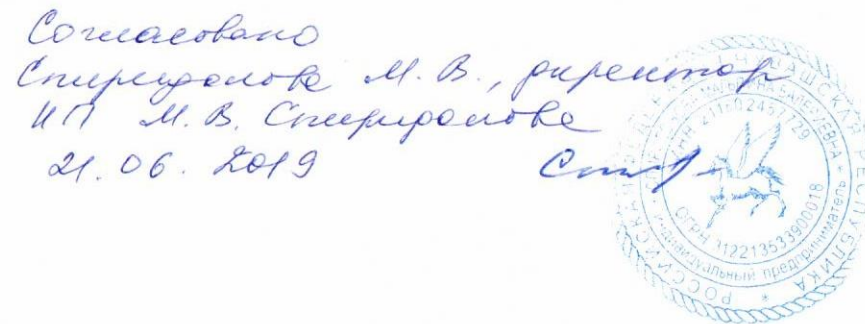 Согласовано
Спиридонова М. В., директор
ИП М. В. Спиридонова
21.06.2019
РОССИЙСКАЯ ЧУВАШСКАЯ РЕСПУБЛИКА
ВАЛЕРЬЕВНА
ОГРН 312213533900018
индивидуальный предприниматель